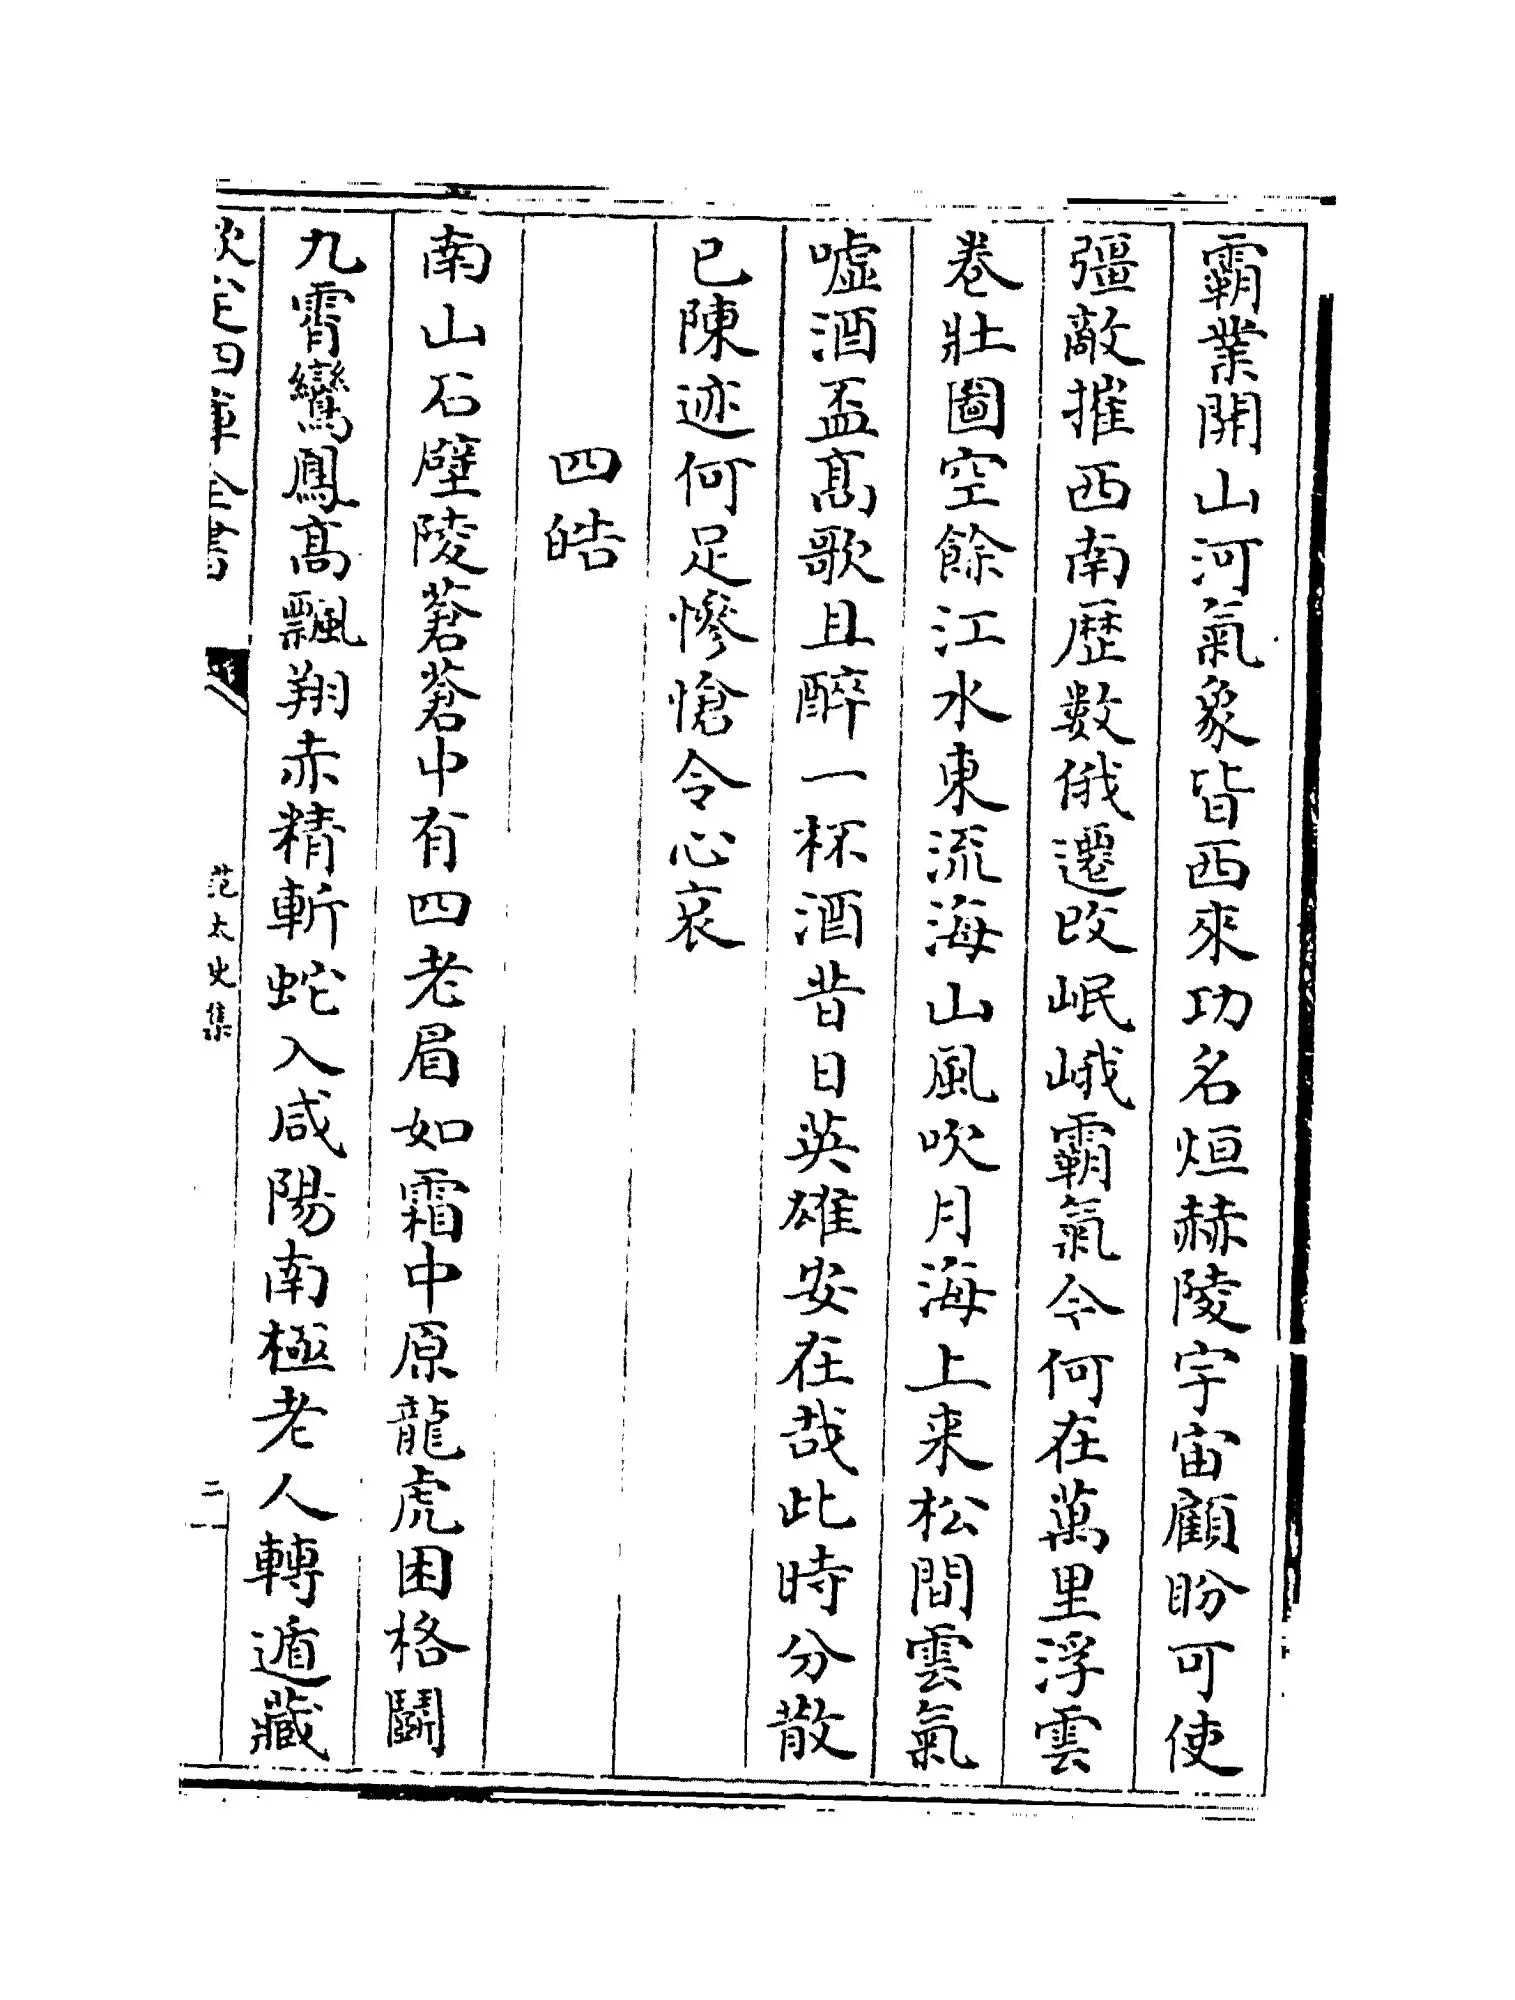 霸業開山河氣象皆西來功名烜赫陵宇宙顧盼可使
彊敵摧西南歴數俄遷改岷峨霸氣今何在萬里浮雲
卷壯圖空餘江水東流海山風吹月海上来松間雲氣
嘘酒盃髙歌且醉一杯酒昔日英雄安在哉此時分散
已陳迹何足慘愴令心哀
四皓
南山石壁陵蒼蒼中有四老眉如霜中原龍虎困格鬭
九霄鸞鳳髙飄翔赤精斬蛇入咸陽南極老人轉遁藏
欽定四庫全書
范太史集
二